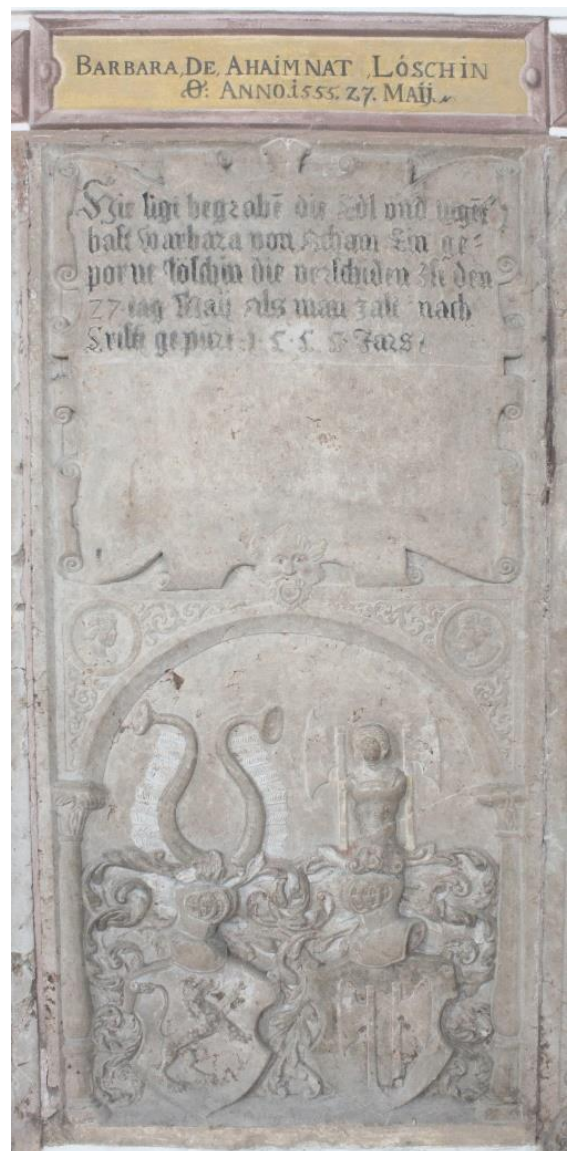 BARBARA, DE, AHAIMNAT LÓSCHIN
O: ANNO. 1555. 27. MAIJ.
Hie ligt begrabē die Edl und tugēt
haft Warbara von Acham Ein ge-
porne Loschin die verschiden Ist den
27 tag Maij Als man zalt nach
Cristi gepurt Jars